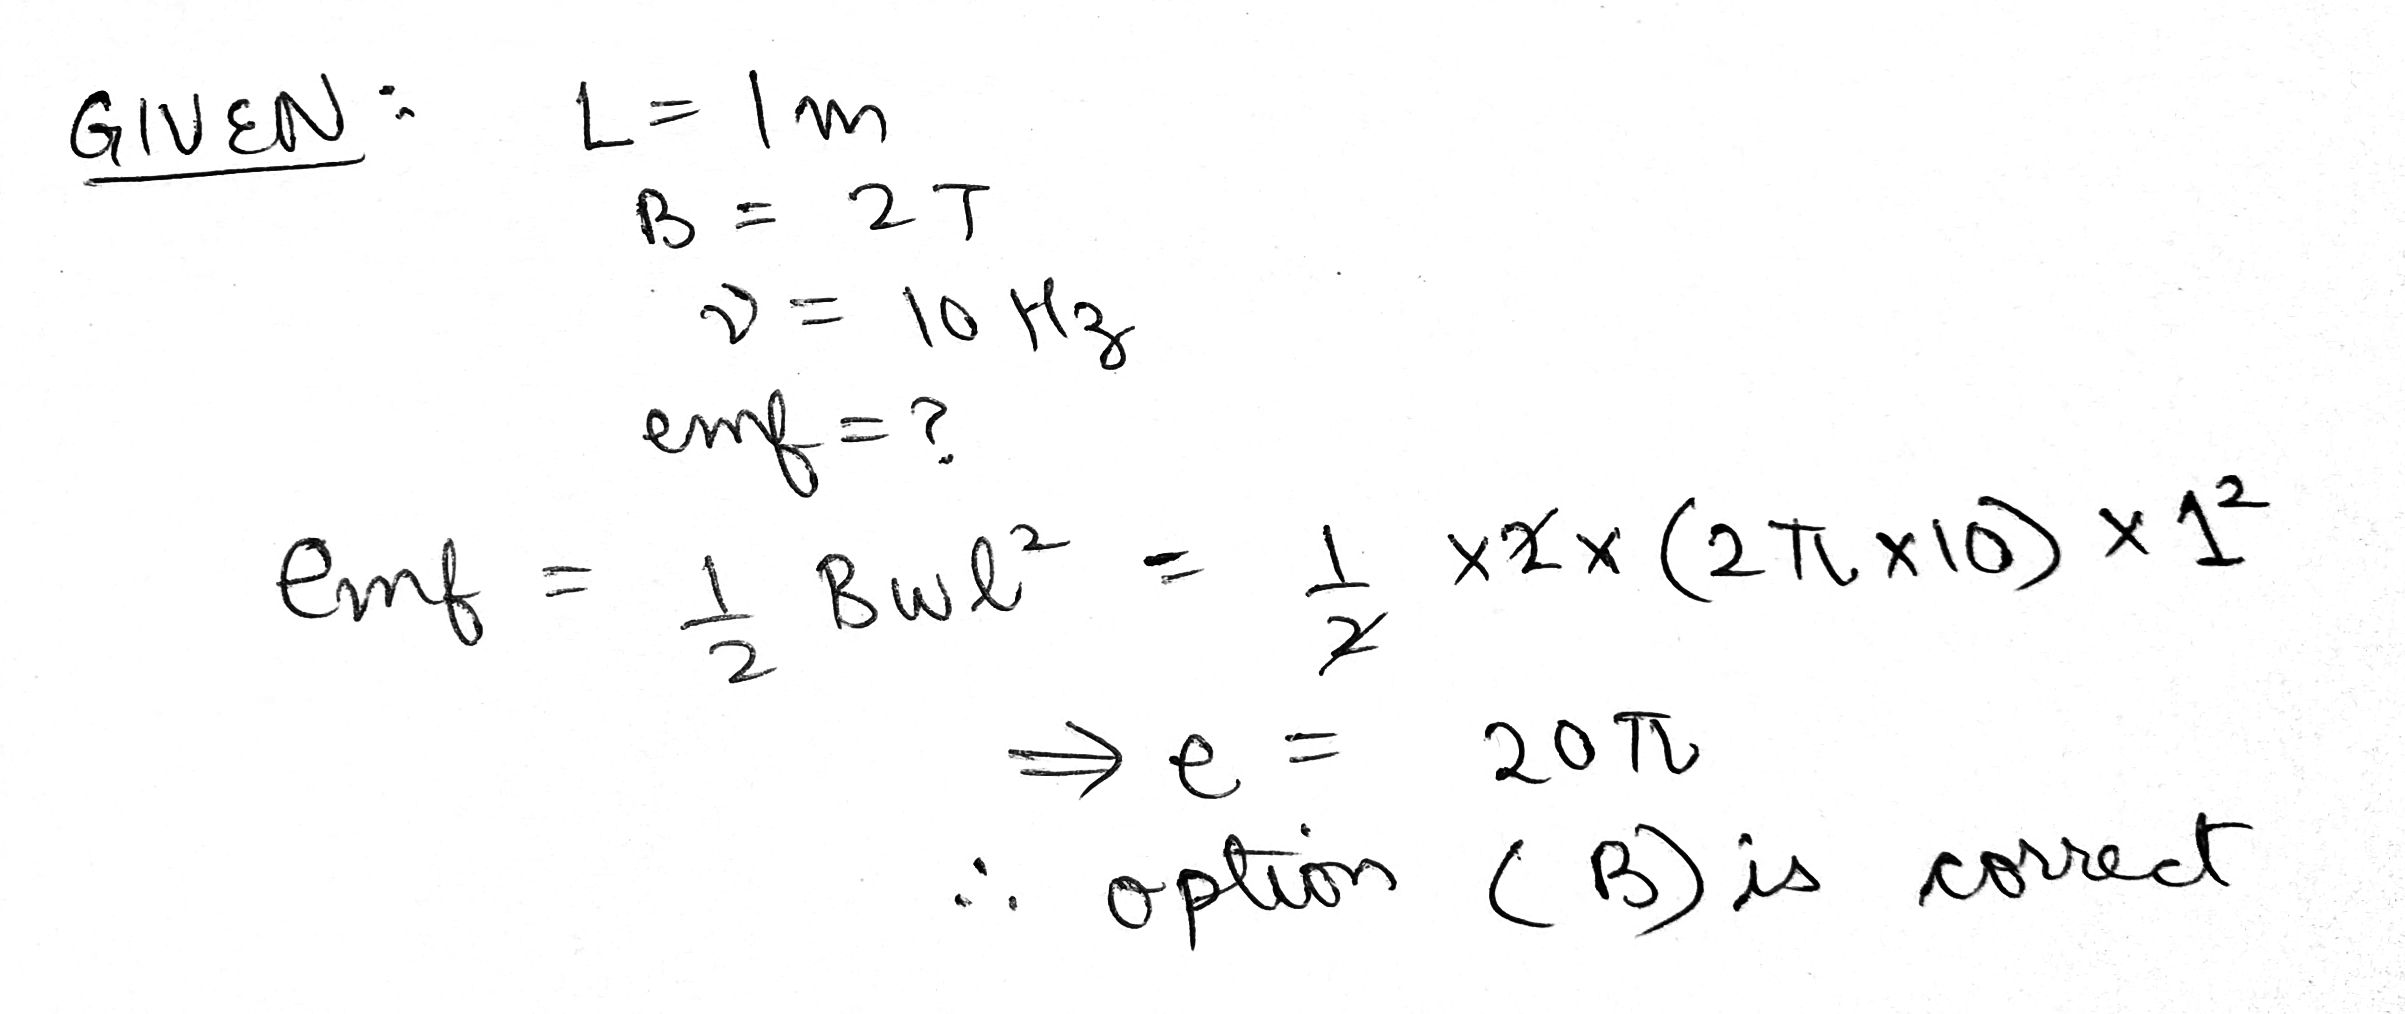 GIVEN: L = 1m
B = 2T
ν = 10 Hz
emf = ?
emf = 1/2 Bwl² = 1/2 × 2 × (2π × 10) × 1²
⇒ e = 20π
∴ option (B) is correct